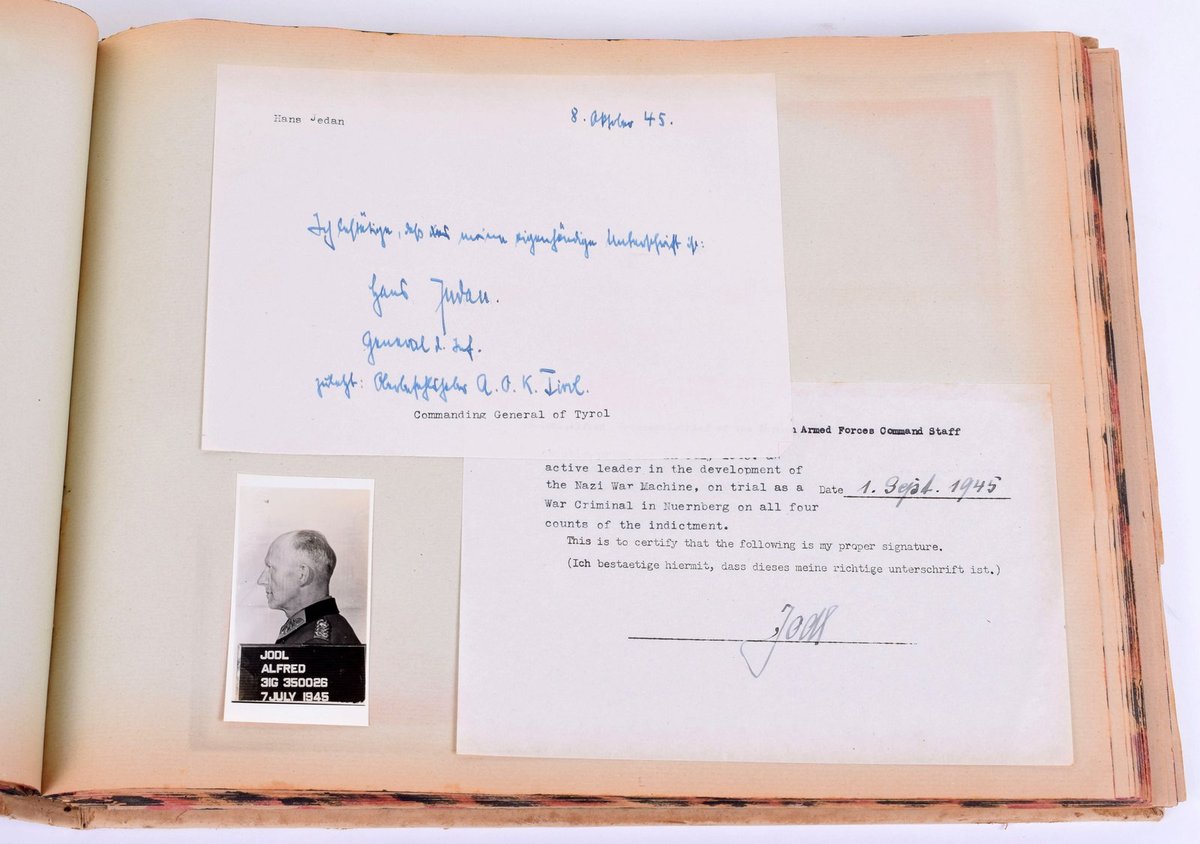 Hans Jedan
8. Oktober 45.
Ich bestätige, daß das meine eigenhändige Unterschrift ist:
Hans Jedan.
General d. Inf.
zuletzt: Oberbefehlshaber A.O.K. Tirol.
Commanding General of Tyrol
Armed Forces Command Staff
active leader in the development of
the Nazi War Machine, on trial as a
Date 1. Sept. 1945
War Criminal in Nuernberg on all four
counts of the indictment.
This is to certify that the following is my proper signature.
(Ich bestaetige hiermit, dass dieses meine richtige unterschrift ist.)
Jodl
JODL
ALFRED
31G 350026
7 JULY 1945